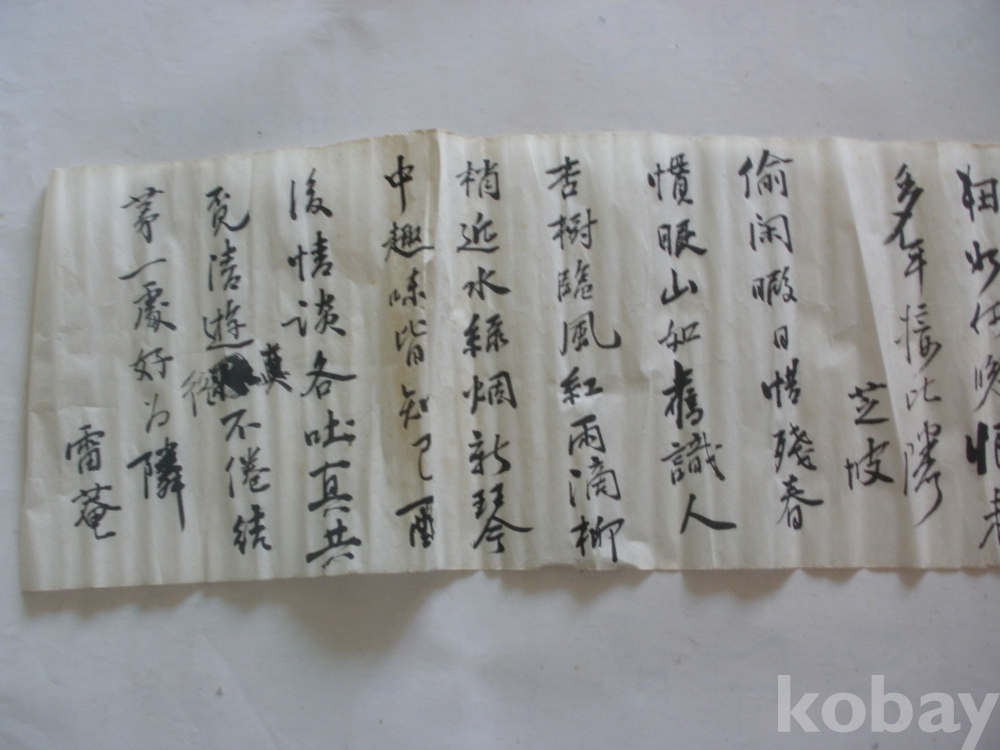 多年接比隣
芝坡
偷闲暇日惜殘春
慣眼山如舊識人
杏樹臨風紅雨滴柳
梢近水綠烟新琴
中趣味皆知己酒
後情談各吐真共
真
覓清遊不倦結
茅一處好为隣
雷菴
kobay